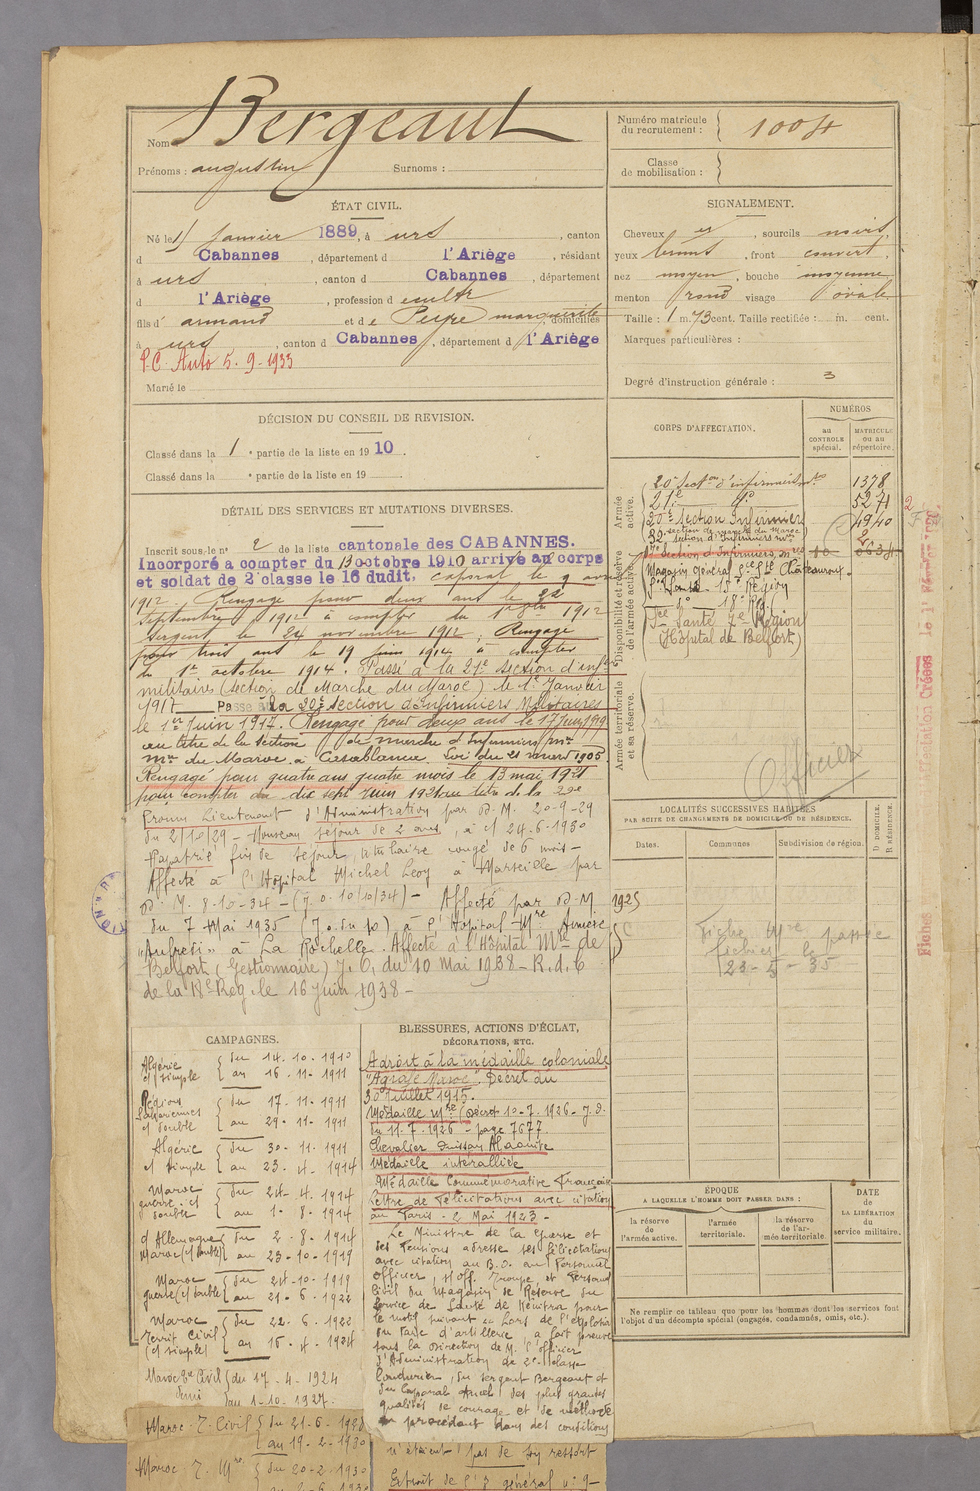 Nom Bergeaut
Prénoms : augustin Surnoms :
Numéro matricule du recrutement : 1004
Classe de mobilisation :
ÉTAT CIVIL.
Né le janvier 1889, à urs, canton
d Cabannes, département d l'Ariège, résidant
à urs, canton d Cabannes, département
d l'Ariège, profession d cultr
fils d' armand et de Peyre marguerite, domiciliés
à urs, canton d Cabannes, département d l'Ariège
P.C. Auto 5.9.1933
Marié le
SIGNALEMENT.
Cheveux et, sourcils noirs,
yeux bruns, front couvert,
nez moyen, bouche moyenne
menton rond visage ovale
Taille : 1 m. 73 cent. Taille rectifiée : m. cent.
Marques particulières :
Degré d'instruction générale : 3
DÉCISION DU CONSEIL DE REVISION.
Classé dans la 1e partie de la liste en 1910.
Classé dans la e partie de la liste en 19
CORPS D'AFFECTATION.
NUMÉROS
au CONTROLE spécial.
MATRICULE ou au répertoire.
Armée active.
20e Secton d'infirmiers mres 1378
21e do 5271
20e Section Infirmiers 4940
section de marche du Maroc
32e section d'Infirmiers mres
Disponibilité et réserve de l'armée active.
Section d'Infirmiers mres
Magasin Général Sce Sté Châteauroux.
Sce Santé 15e Région
do 18e Rég.
Sce Santé 7e Région
(Hôpital de Belfort)
Armée territoriale et sa réserve.
Officier
DÉTAIL DES SERVICES ET MUTATIONS DIVERSES.
Inscrit sous le no 2 de la liste cantonale des CABANNES.
Incorporé a compter du 13 octobre 1910 arrivé au corps
et soldat de 2e classe le 16 dudit, caporal le 9 avril
1912. Rengagé pour deux ans le 22
septembre 1912 à compter du 1er 8bre 1912
Sergent le 24 novembre 1912, Rengagé
pour trois ans le 19 juin 1914 à compter
du 1er octobre 1914. Passé à la 21e section d'infrs
militaires (section de Marche du Maroc) le 1er Janvier
1917 Passé à la 20e Section d'Infirmiers Militaires
le 1er Juin 1917. Rengagé pour deux ans le 17 Juin 1919
au titre de la section de marche d'Infirmiers mres
mre du Maroc à Casablanca. Loi du 21 mars 1905
Rengagé pour quatre ans quatre mois le 13 mai 1921
pour compter du dix sept Juin 1921 au titre de la 32e
Promu Lieutenant d'Administration par D.M. 20-9-29
du 2/10/29 - Nouveau séjour de 2 ans, à c/ 24-6-1930
Rapatrié fin de séjour, titulaire congé de 6 mois -
Affecté à l'Hôpital Michel Levy à Marseille par
D. M. 8-10-34 - (J.O. 10/10/34) - Affecté par D.M. 1925
du 7 Mai 1935 (J.O. du 10) à l'Hôpital Mre Annexe
"Aufredi" à La Rochelle. Affecté à l'Hôpital Mre de
Belfort (Gestionnaire) J.O. du 10 Mai 1938 - R.d.C
de la 18e Rég. le 16 Juin 1938 -
LOCALITÉS SUCCESSIVES HABITÉES
PAR SUITE DE CHANGEMENTS DE DOMICILE OU DE RÉSIDENCE.
Dates.
Communes
Subdivision de région.
D DOMICILE.
R RÉSIDENCE.
Fiche passée
fichier le
23-5-35
CAMPAGNES.
Algérie c/ simple du 14.10.1910 au 16.11.1911
Régions Sahariennes c/ double du 17.11.1911 au 29.11.1911
Algérie c/ simple du 30.11.1911 au 23.4.1914
Maroc guerre c/ double du 24.4.1914 au 1.8.1914
c/ Allemagne Maroc (c/ double) du 2.8.1914 au 23.10.1919
Maroc guerre (c/ double) du 24.10.1919 au 21.6.1922
Maroc Territ Civil (c/ simple) du 22.6.1922 au 16.4.1924
Maroc Civil du 17.4.1924
demi au 1-10-1927
Maroc T. Civil du 21-6-1928
au 19-2-1930
Maroc T. Mre du 20-2-1930
BLESSURES, ACTIONS D'ÉCLAT,
DÉCORATIONS, ETC.
A droit à la médaille coloniale
"Agrafe Maroc". Décret du
30 Juillet 1915.
Médaille Mre (Décret 10-7.1926 - J.O.
du 11.7.1926 - page 7677.
Chevalier Ouissam Alaouite
Médaille interalliée
Médaille Commémorative Française
Lettre de Félicitations avec citation
au Paris - 2 Mai 1923 -
Le Ministre de la Guerre et
des Pensions adresse ses félicitations
avec citation au B.O. au Personnel
officier, s/off. Troupe, et Personnel
Civil du Magasin de Réserve du
Service de Santé de Kénitra pour
le motif suivant : Lors de l'explosion
du Parc d'artillerie a fait preuve
sous la Direction de M. l'officier
d'Administration de 2e classe
du sergent Bergeaut et
du Caporal des plus grandes
qualités de courage et de méthode
en procédant dans des conditions
n'étaient pas de son ressort
Extrait de l'O général no 9-
ÉPOQUE
A LAQUELLE L'HOMME DOIT PASSER DANS :
la réserve de l'armée active.
l'armée territoriale.
la réserve de l'armée territoriale.
DATE de LA LIBÉRATION du service militaire.
Ne remplir ce tableau que pour les hommes dont les services font
l'objet d'un décompte spécial (engagés, condamnés, omis, etc.).